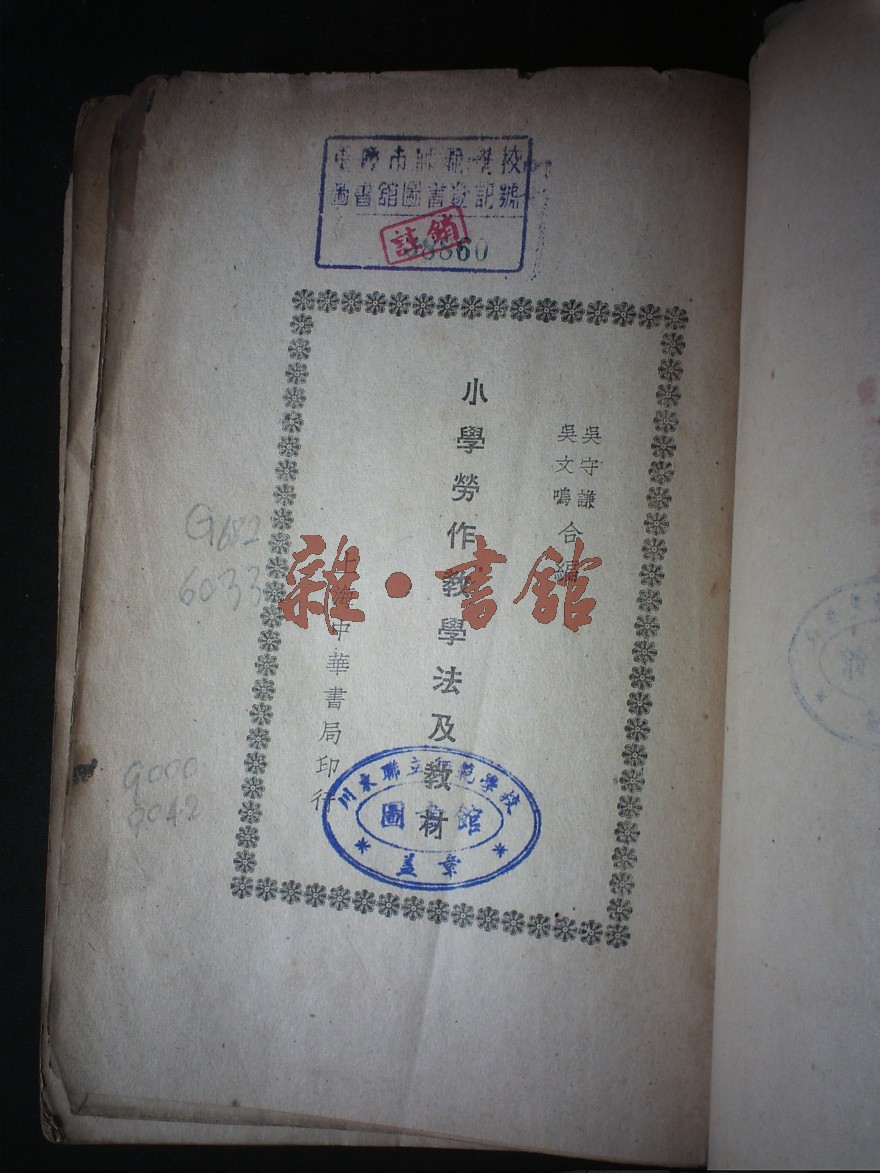 重慶市師範學校
圖書館圖書登記號
註銷
38860
吳守謙
吳文鳴
合編
小學勞作教學法及教材
上海中華書局印行
川東聯立師範學校
圖書館
蓋章
G682
6033
雜·書館